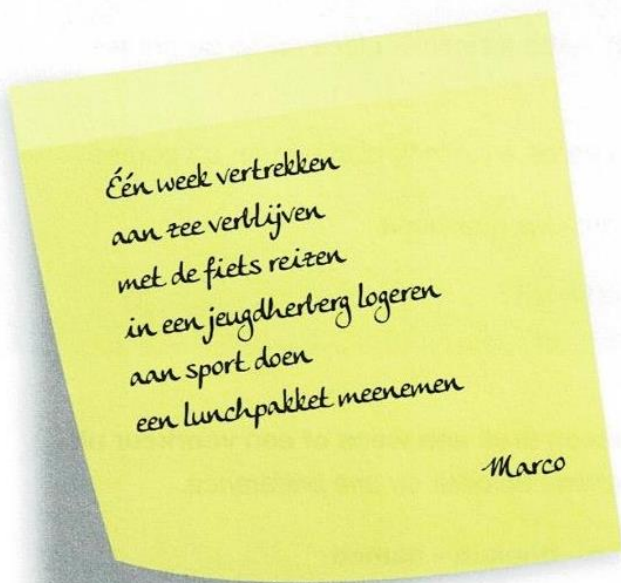 Één week vertrekken
aan zee verblijven
met de fiets reizen
in een jeugdherberg logeren
aan sport doen
een lunchpakket meenemen
Marco